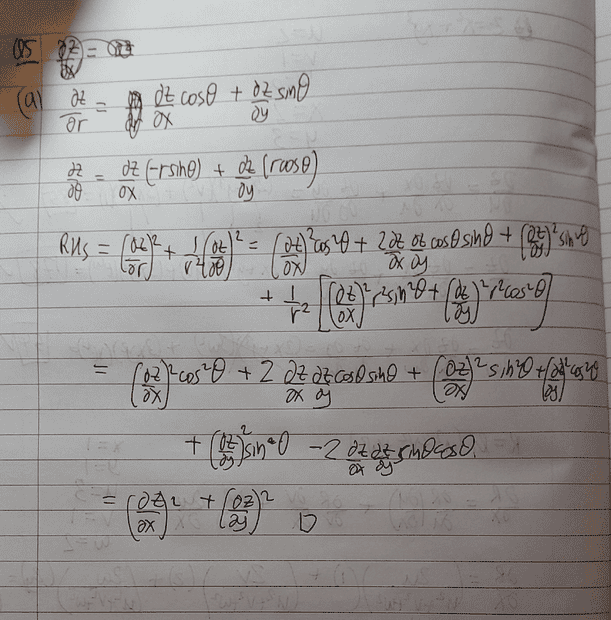 Q5 ∂z/∂x =
(a) ∂z/∂r = ∂z/∂x cosθ + ∂z/∂y sinθ
∂z/∂θ = ∂z/∂x (-rsinθ) + ∂z/∂y (rcosθ)
RHS = (∂z/∂r)² + 1/r² (∂z/∂θ)² = (∂z/∂x)² cos²θ + 2 ∂z/∂x ∂z/∂y cosθ sinθ + (∂z/∂y)² sin²θ
+ 1/r² [(∂z/∂x)² r² sin²θ + (∂z/∂y)² r² cos²θ]
= (∂z/∂x)² cos²θ + 2 ∂z/∂x ∂z/∂y cosθ sinθ + (∂z/∂x)² sin²θ + (∂z/∂y)² cos²θ
+ (∂z/∂y)² sin²θ - 2 ∂z/∂x ∂z/∂y sinθ cosθ.
= (∂z/∂x)² + (∂z/∂y)² □